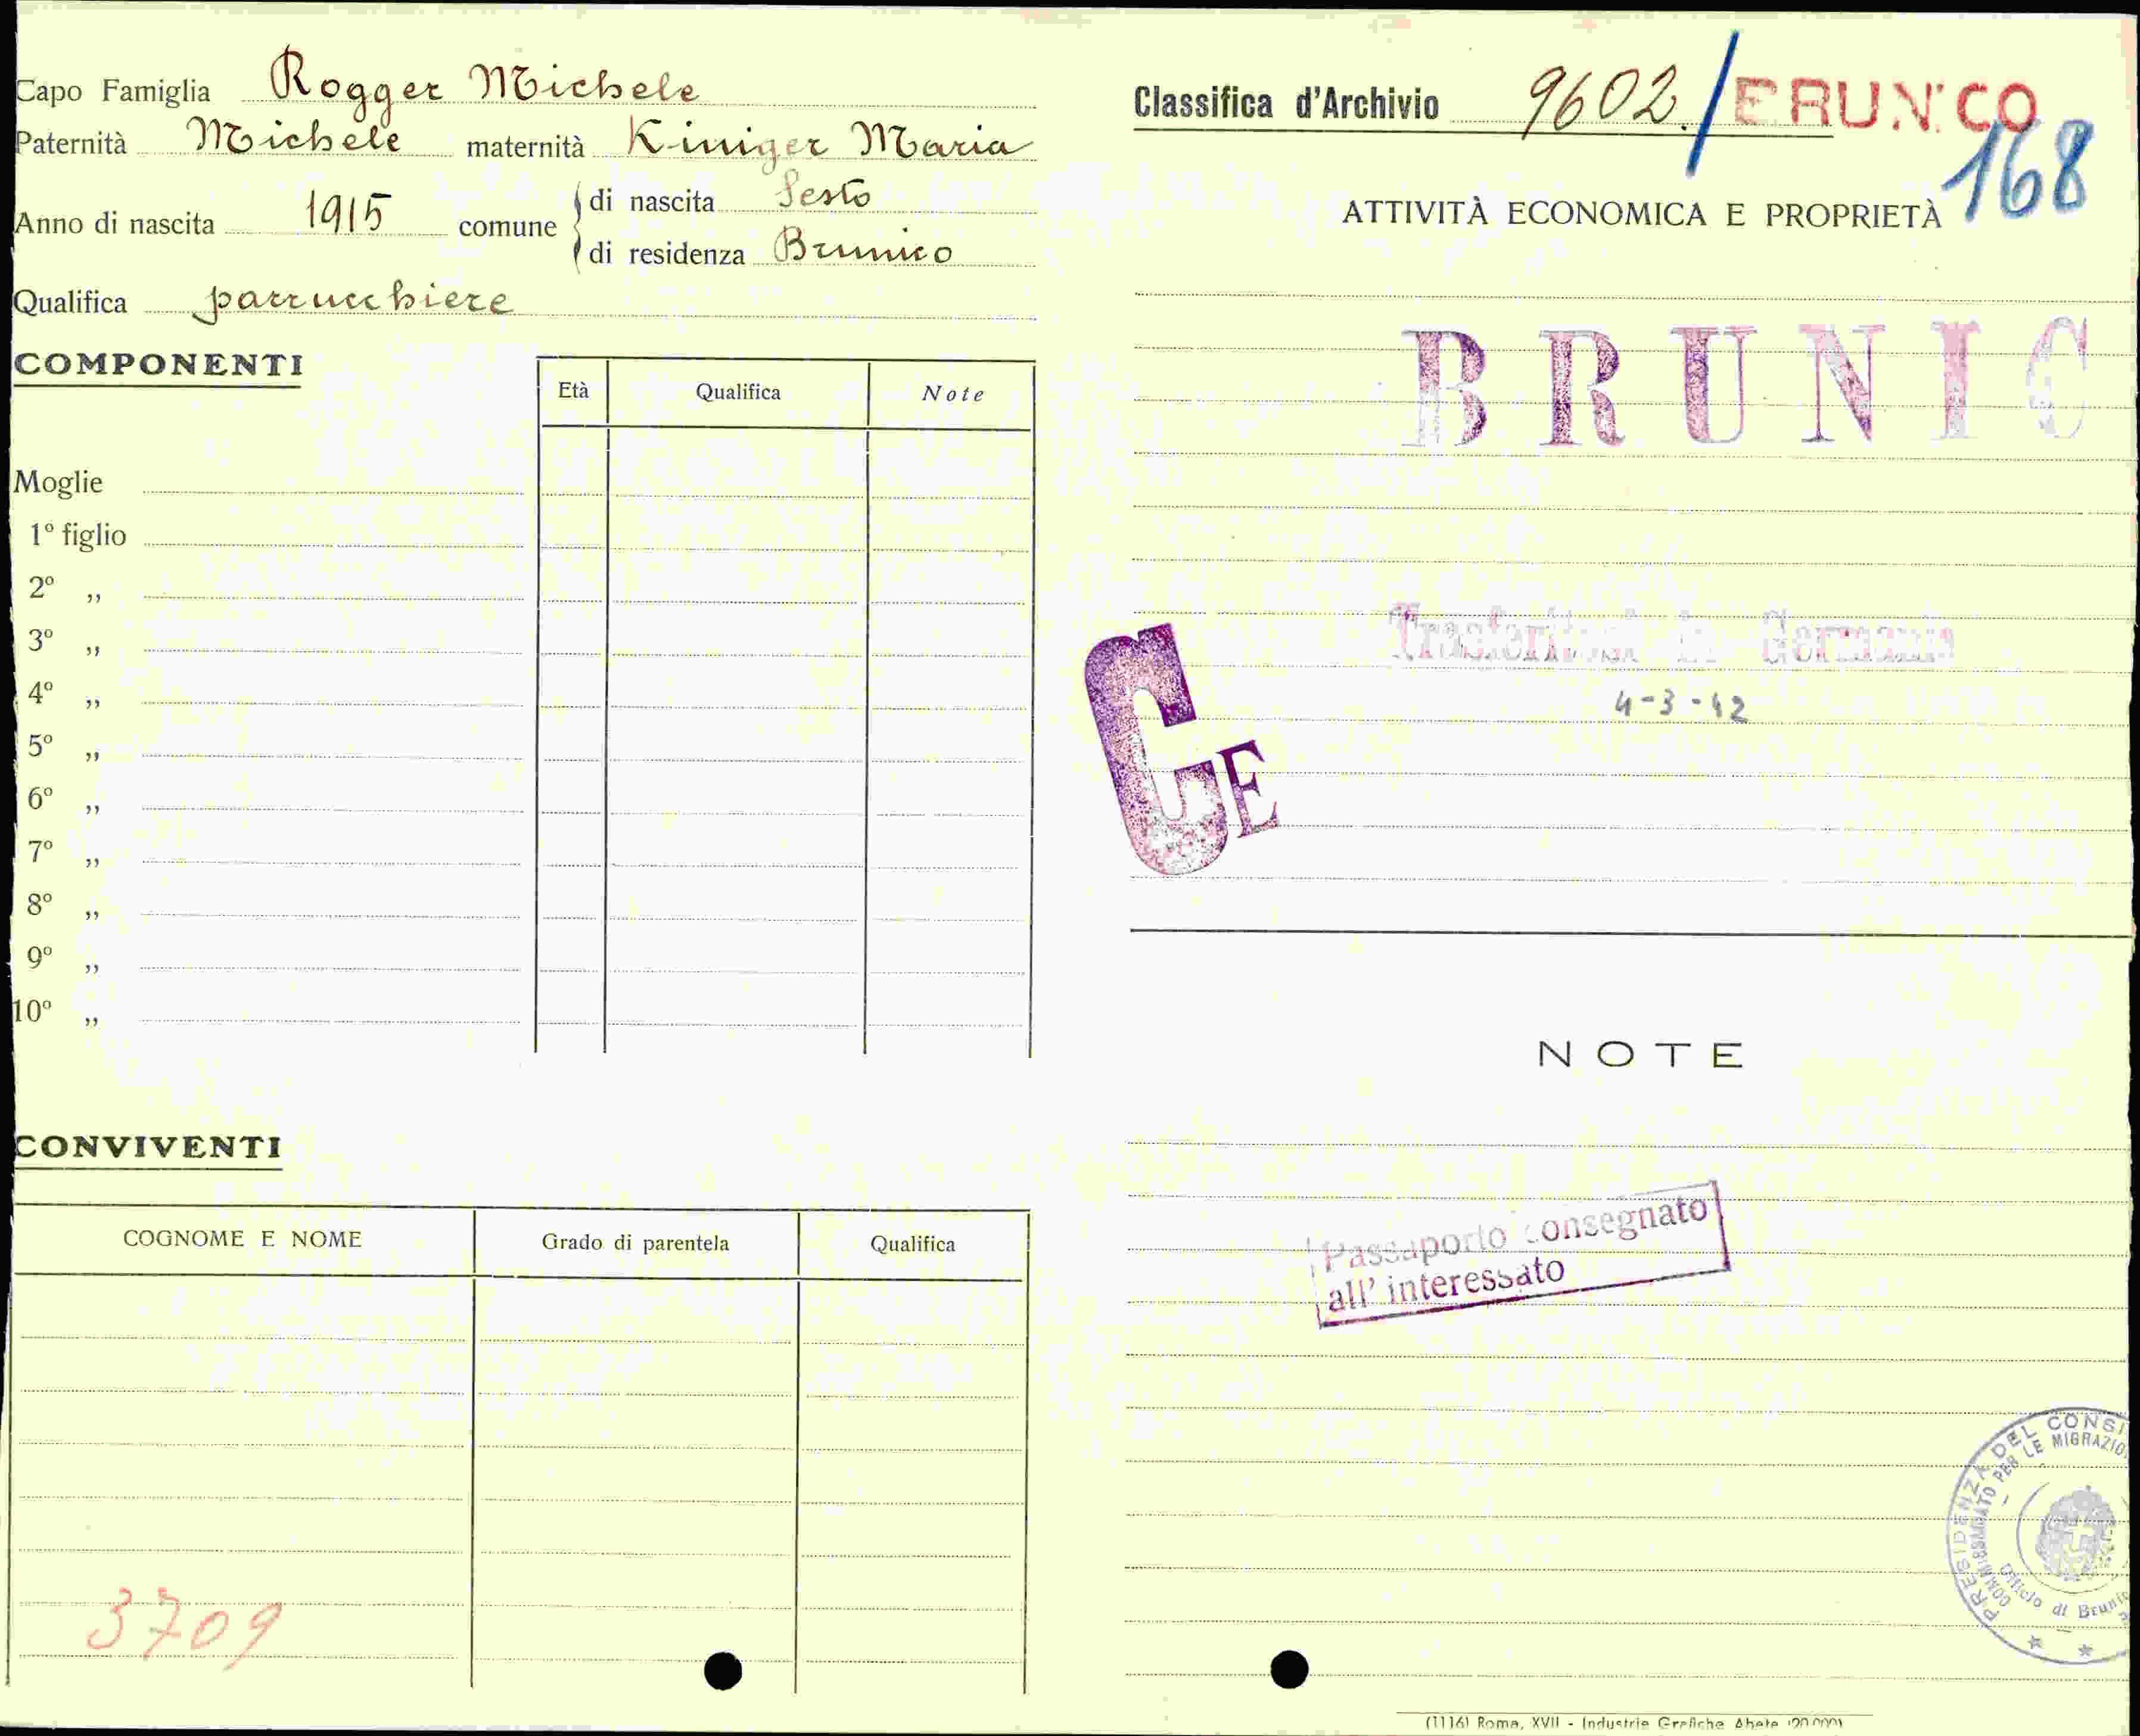 Capo Famiglia Rogger Michele
Paternità Michele maternità Kiniger Maria
Anno di nascita 1915 comune di nascita Sesto
di residenza Brunico
Qualifica parrucchiere
COMPONENTI
Età Qualifica Note
Moglie
1º figlio
2º „
3º „
4º „
5º „
6º „
7º „
8º „
9º „
10º „
CONVIVENTI
COGNOME E NOME Grado di parentela Qualifica
3709
Classifica d'Archivio 9602./BRUNICO
168
ATTIVITÀ ECONOMICA E PROPRIETÀ
BRUNIC
Trasferitosi in Germania
4-3-42
CE
NOTE
Passaporto consegnato
all' interessato
PRESIDENZA DEL CONSI
COMMISSARIATO PER LE MIGRAZIO
Ufficio di Brunic
(1116) Roma, XVII - Industrie Grafiche Abete